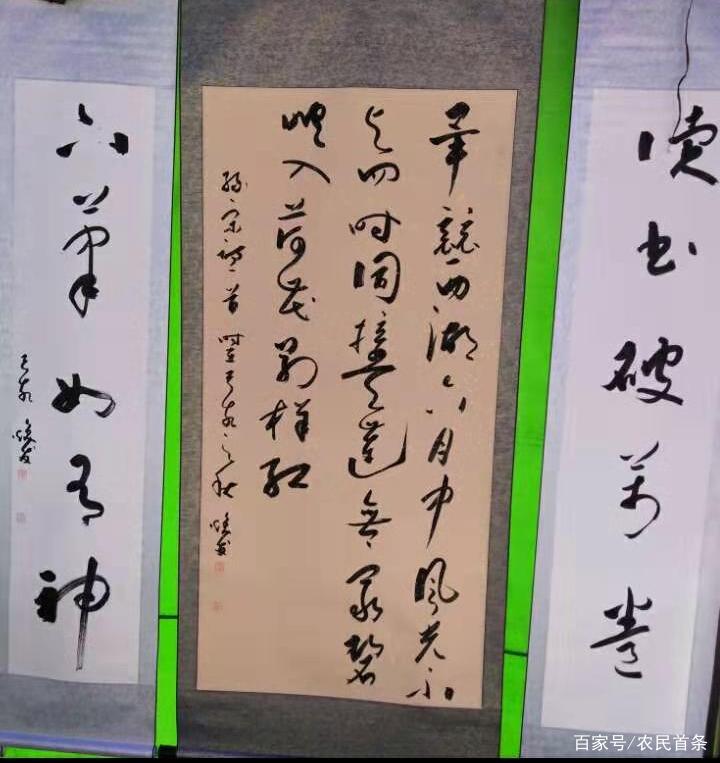 读书破万卷
毕竟西湖六月中风光不
与四时同接天莲无穷碧
映入荷花别样红
宋诗一首 时在己亥之秋
下笔如有神
己亥
百家号/农民首条